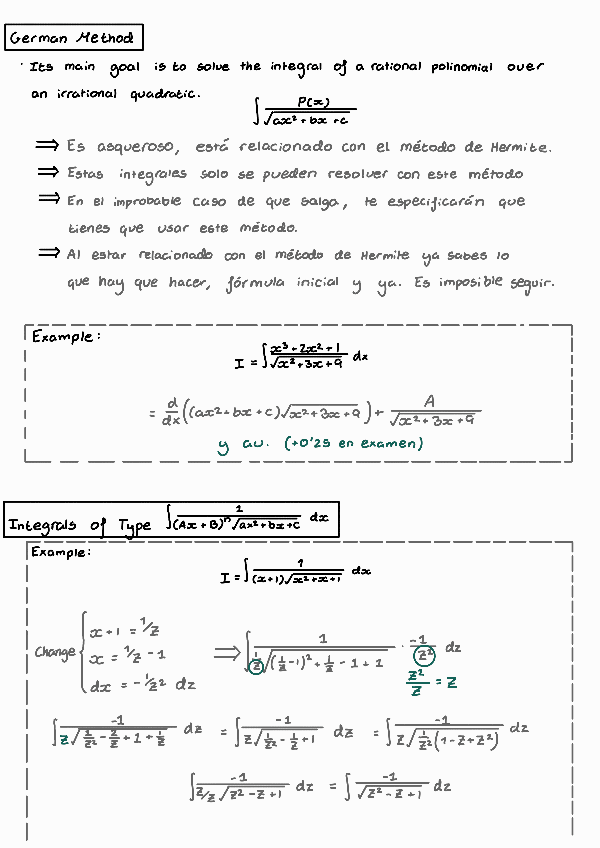 German Method
· Its main goal is to solve the integral of a rational polinomial over
an irrational quadratic.
∫ P(x) / √(ax² + bx + c)
⇒ Es asqueroso, está relacionado con el método de Hermite.
⇒ Estas integrales solo se pueden resolver con este método
⇒ En el improbable caso de que salga, te especificarán que
tienes que usar este método.
⇒ Al estar relacionado con el método de Hermite ya sabes lo
que hay que hacer, fórmula inicial y ya. Es imposible seguir.
Example:
I = ∫ (x³ + 2x² + 1) / √(x² + 3x + 9) dx
= d/dx ((ax² + bx + c)√(x² + 3x + 9)) + A / √(x² + 3x + 9)
y au. (+0'25 en examen)
Integrals of Type ∫ 1 / ((Ax + B)ⁿ √(ax² + bx + c)) dx
Example:
I = ∫ 1 / ((x+1)√(x² + x + 1)) dx
Change { x + 1 = 1/z
x = 1/z - 1
dx = -1/z² dz
⇒ ∫ 1 / (1/z √((1/z - 1)² + 1/z - 1 + 1)) · -1/z² dz
z²/z = z
∫ -1 / (z√(1/z² - 2/z + 1 + 1/z)) dz = ∫ -1 / (z√(1/z² - 1/z + 1)) dz = ∫ -1 / (z√(1/z² (1 - z + z²))) dz
∫ -1 / (z/z √(z² - z + 1)) dz = ∫ -1 / √(z² - z + 1) dz